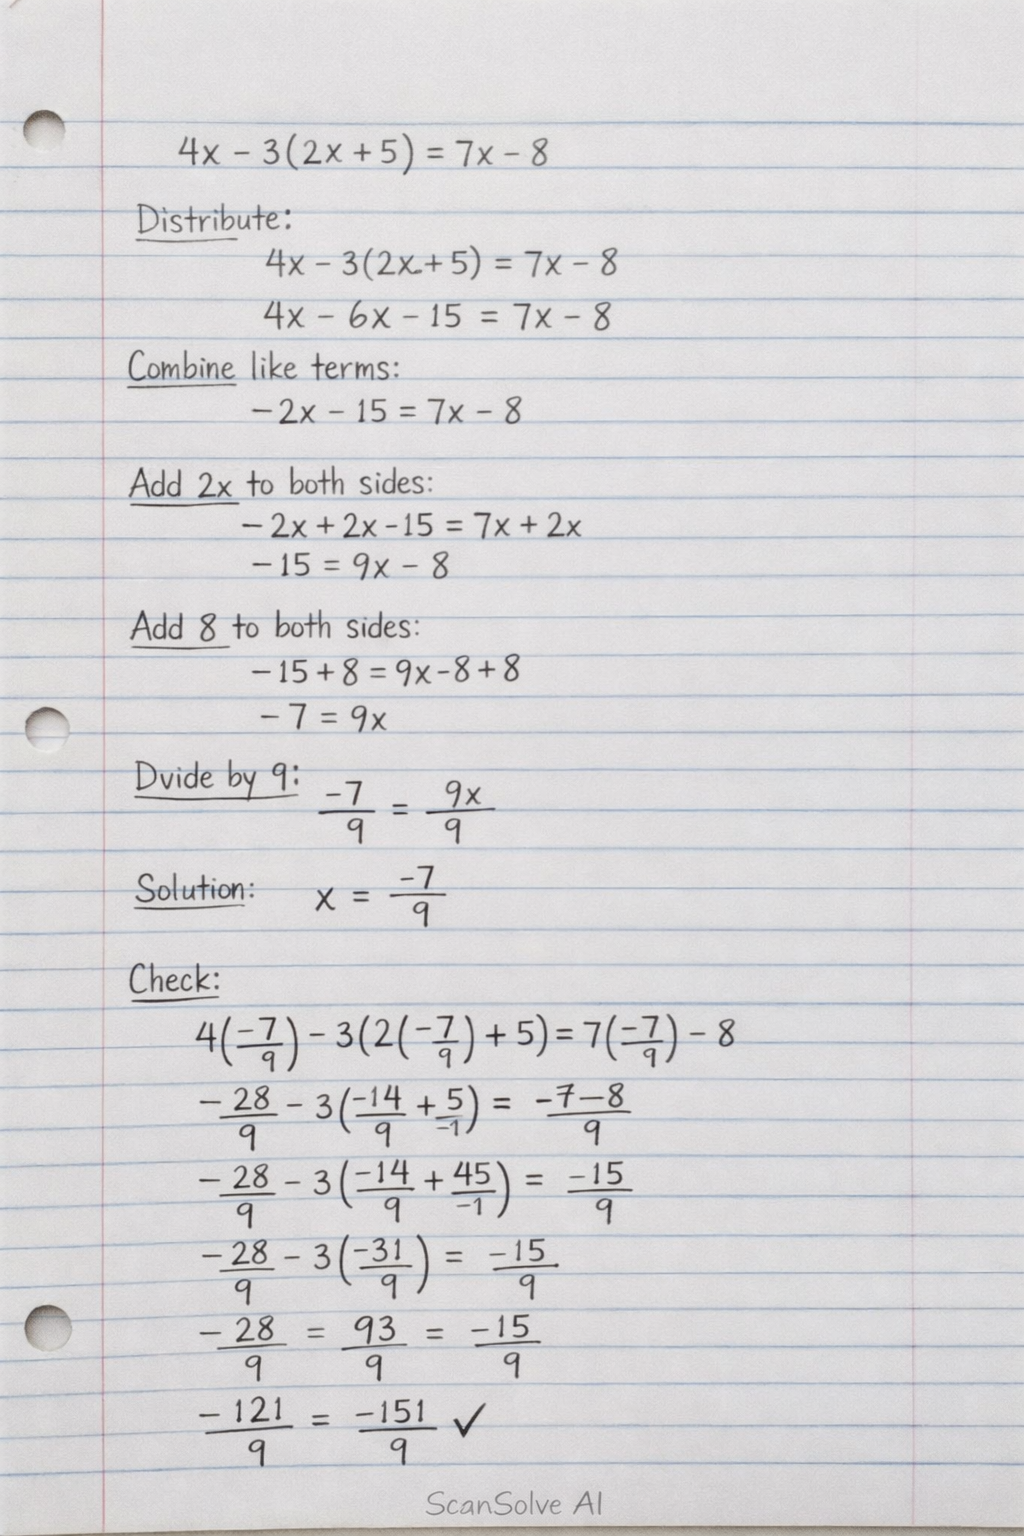 4x − 3(2x + 5) = 7x − 8
Distribute:
4x − 3(2x + 5) = 7x − 8
4x − 6x − 15 = 7x − 8
Combine like terms:
−2x − 15 = 7x − 8
Add 2x to both sides:
−2x + 2x − 15 = 7x + 2x
−15 = 9x − 8
Add 8 to both sides:
−15 + 8 = 9x − 8 + 8
−7 = 9x
Dvide by 9: −7/9 = 9x/9
Solution: x = −7/9
Check:
4(−7/9) − 3(2(−7/9) + 5) = 7(−7/9) − 8
−28/9 − 3(−14/9 + 5/−1) = −7−8/9
−28/9 − 3(−14/9 + 45/−1) = −15/9
−28/9 − 3(−31/9) = −15/9
−28/9 = 93/9 = −15/9
−121/9 = −151/9 ✓
ScanSolve AI